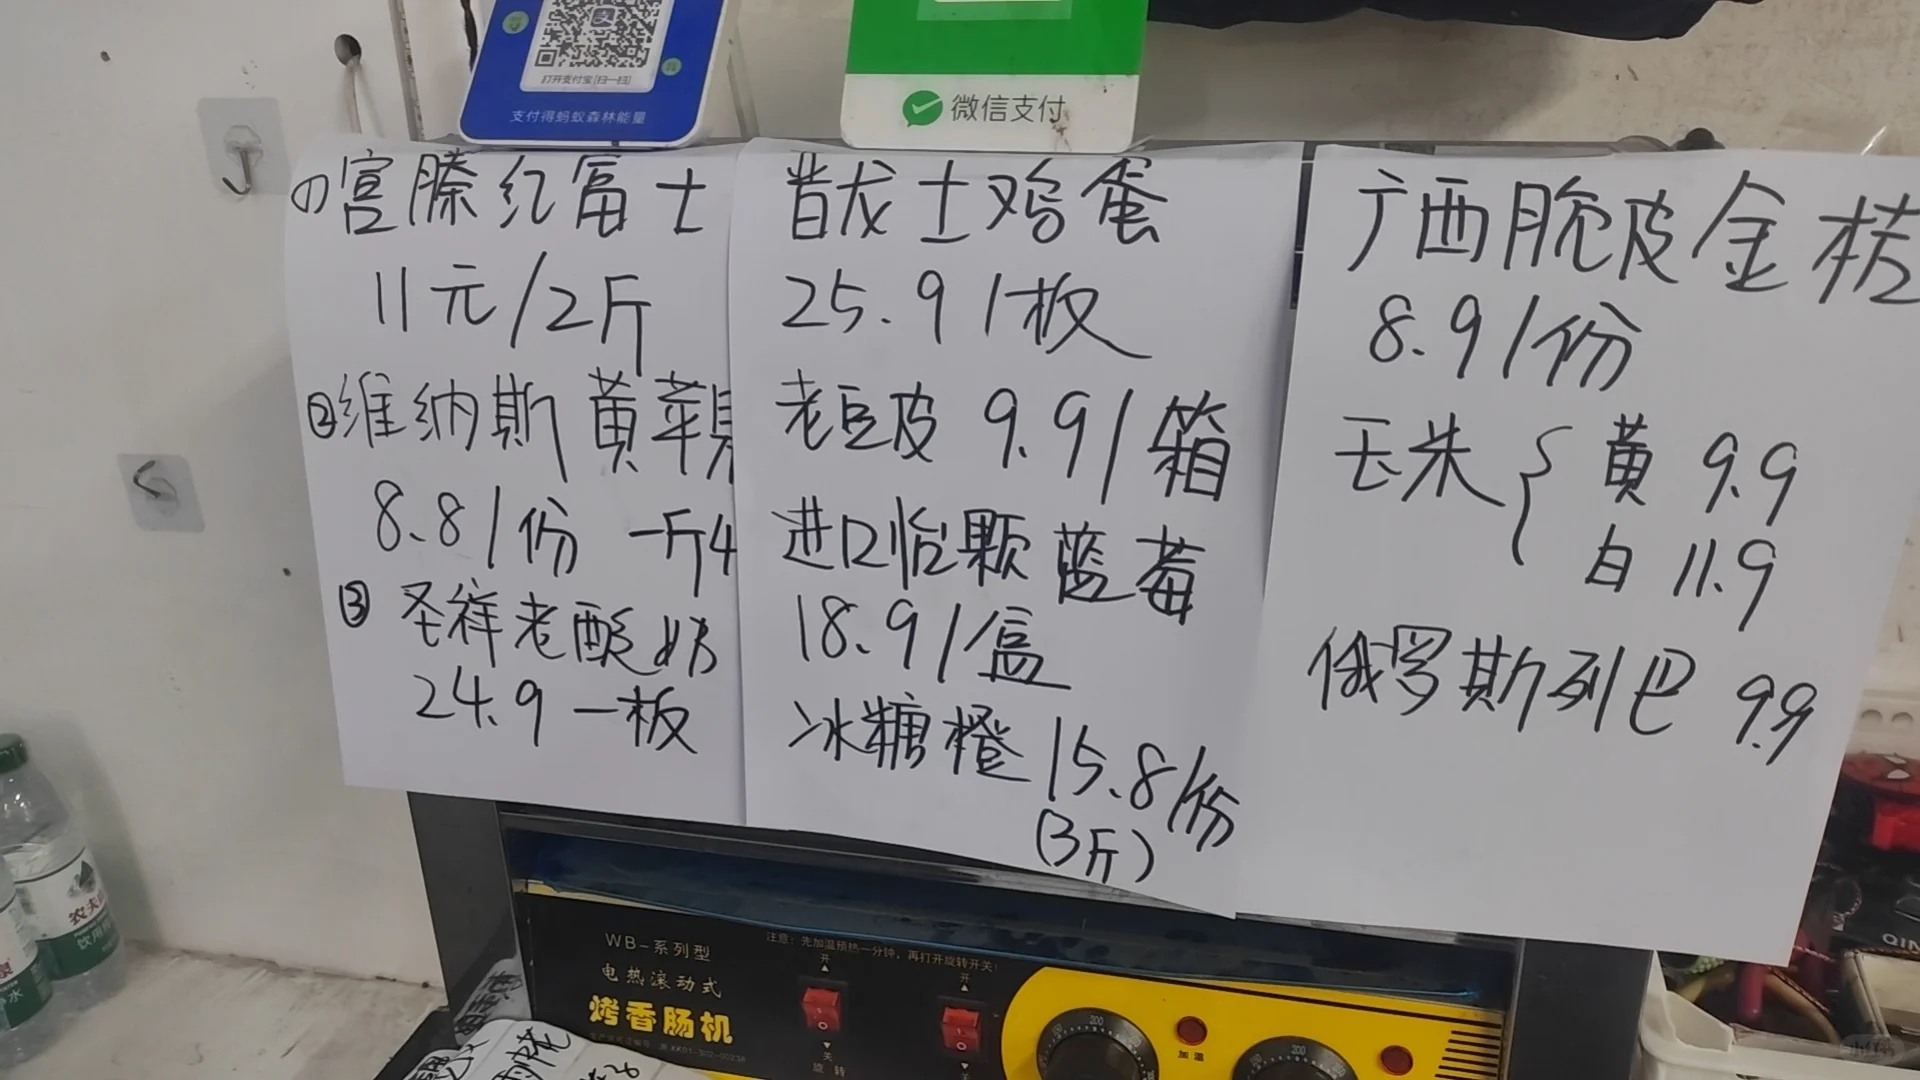 打开支付宝[扫一扫]
支付得蚂蚁森林能量
微信支付
①宫滕红富士
11元/2斤
②维纳斯黄苹果
8.8/份 一斤4
③圣祥老酸奶
24.9一板
昔戊土鸡蛋
25.9/板
老豆皮 9.9/箱
进口怡颗蓝莓
18.9/盒
冰糖橙 15.8/份
(3斤)
广西脆皮金桔
8.9/份
玉米{黄 9.9
白 11.9
俄罗斯列巴 9.9
WB-系列型
电热滚动式
烤香肠机
注意:先加温预热一分钟,再打开旋转开关!
开
关
旋转
开
加温
200
200
农夫
饮用
QIN
小红书